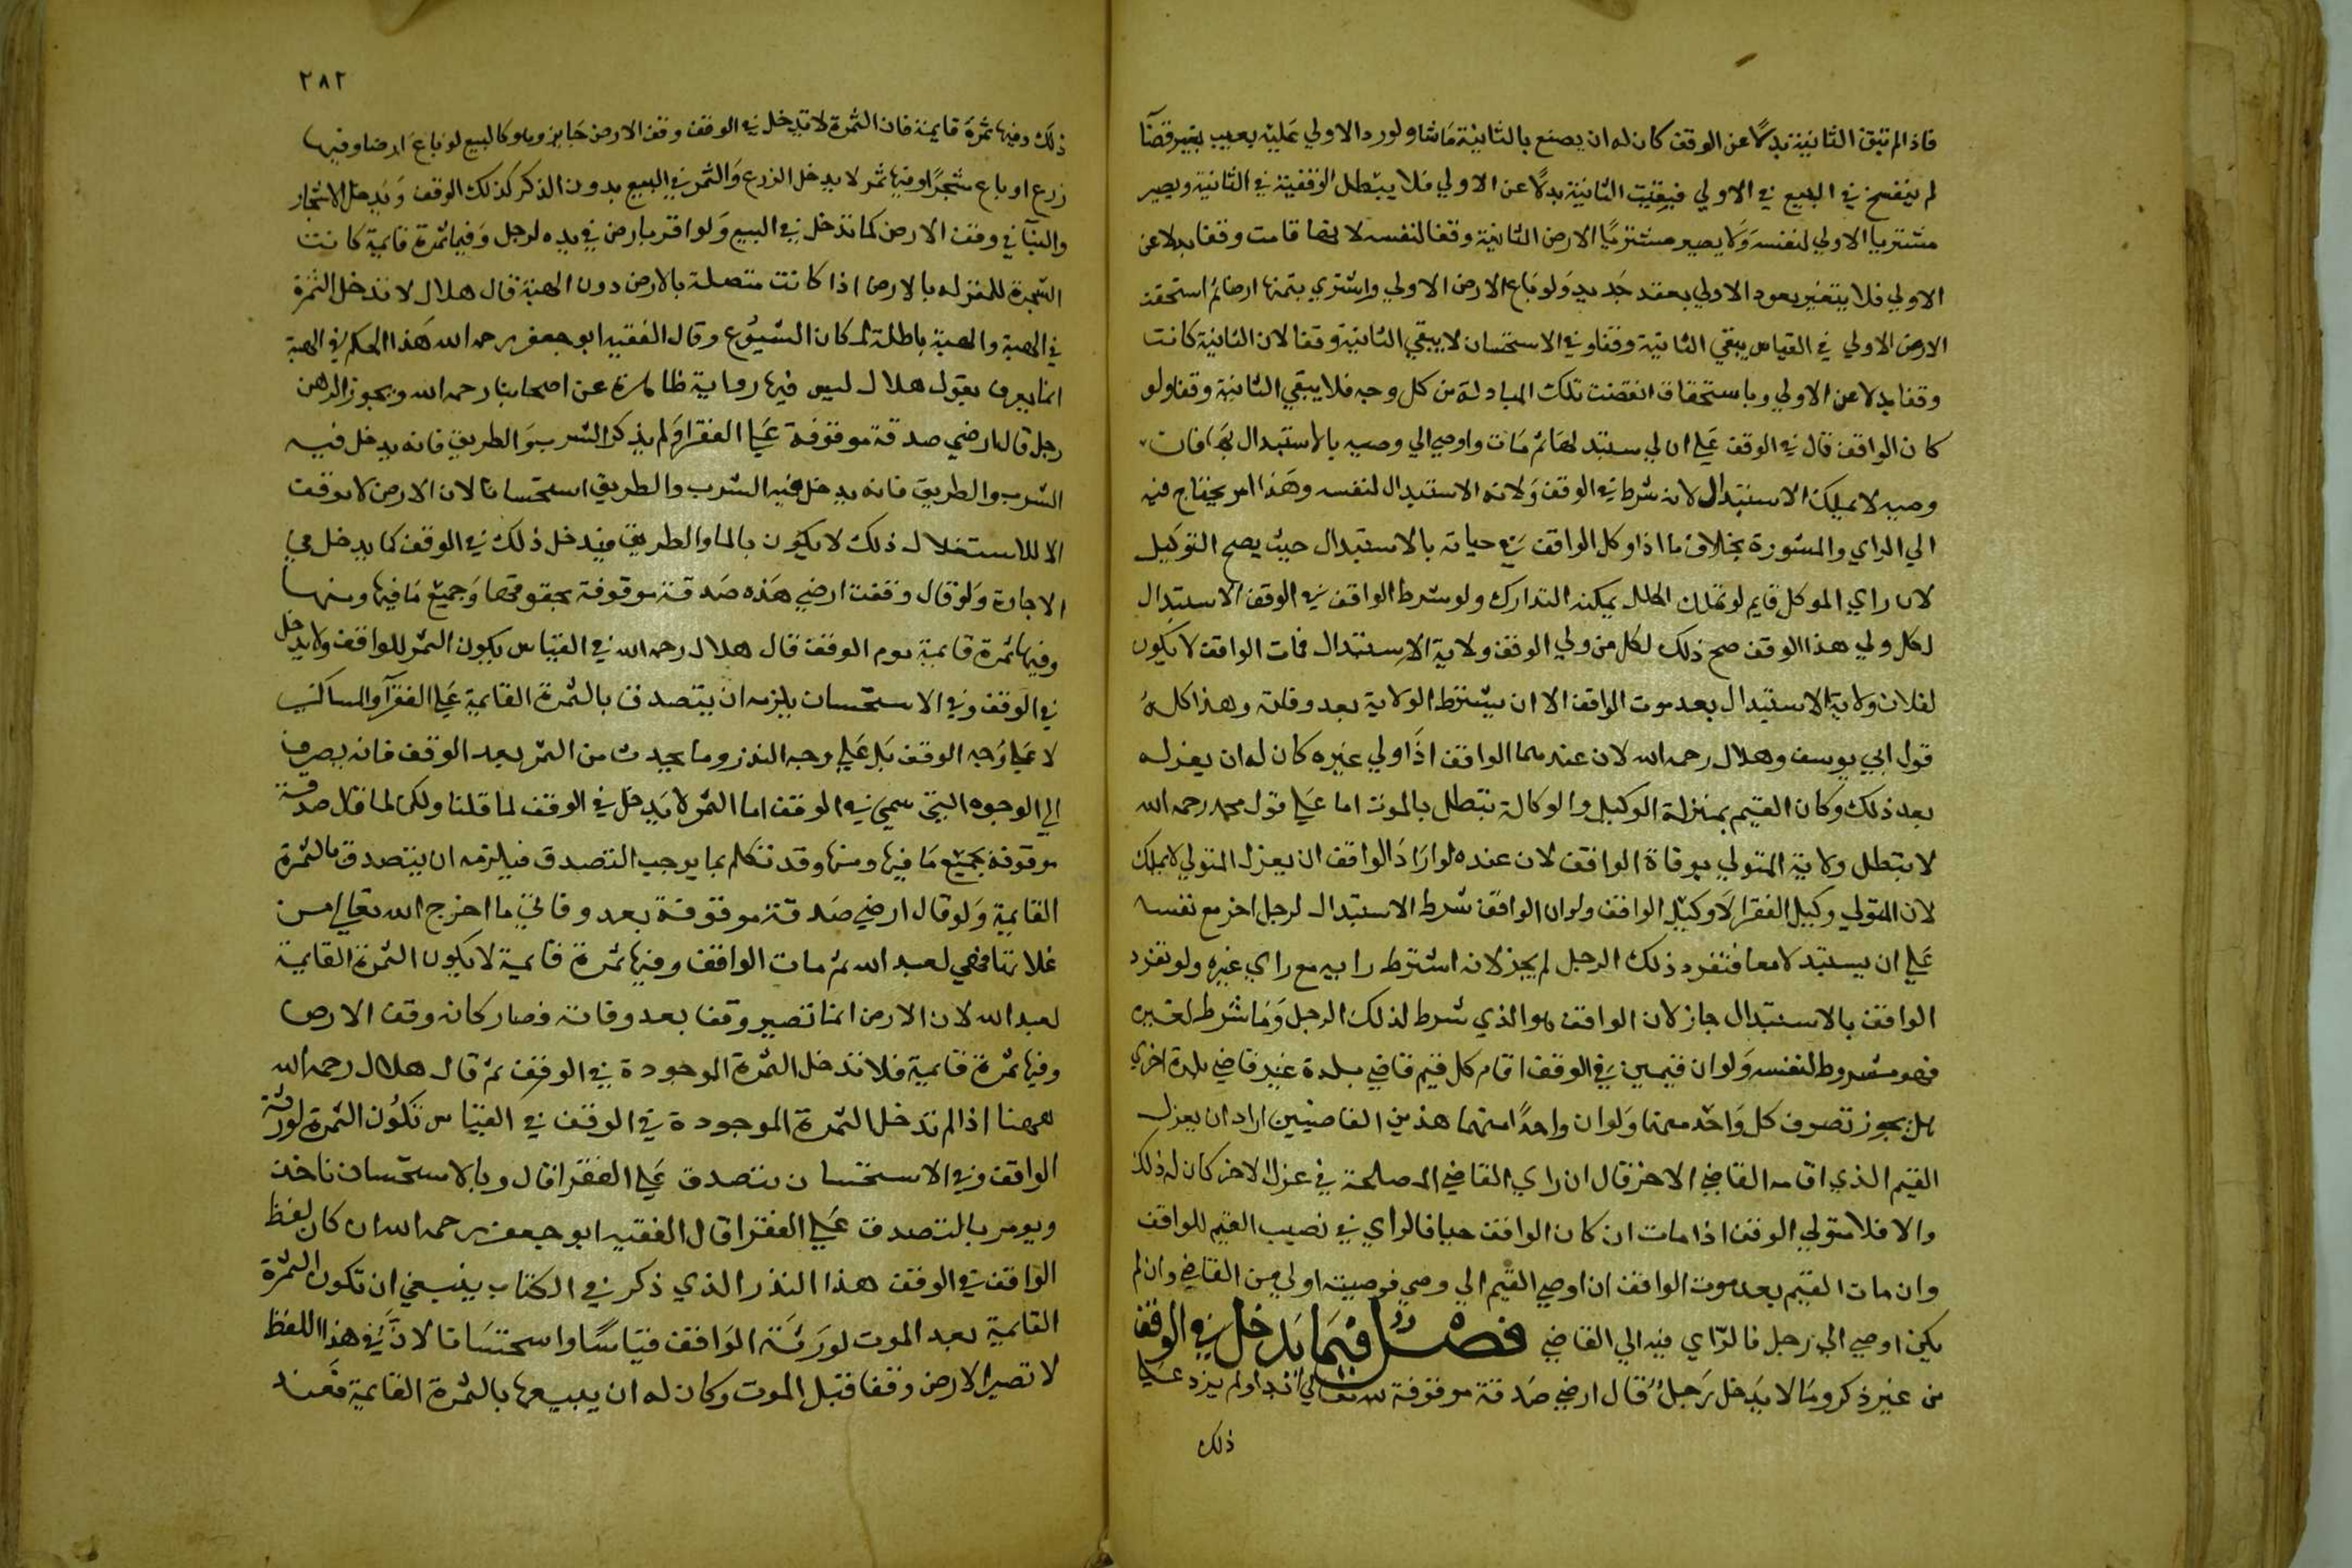 فاذا لم تبق الثانية بدلا عن الوقف كان له ان يصنع بالثانية ما شا ولو رد الاولي عليه بعيب بغير قضآ
لم ينفسخ في البيع في الاولي فبقيت الثانية بدلا عن الاولي فلا يبطل الوقفية في الثانية ويصير
مشتريا الاولي لنفسه ولا يصير مشتريا الارض الثانية وقفا لنفسه لانها قامت وقفا بدلا عن
الاولي فلا يتغير بعود الاولي بعقد جديد ولو باع الارض الاولي واشتري بثمنها ارضا ثم استحقت
الارض الاولي في القياس يبقي الثانية وقفا وفي الاستحسان لا يبقي الثانية وقفا لان الثانية كانت
وقفا بدلا عن الاولي وباستحقاق انقضت تلك المبادلة من كل وجه فلا يبقي الثانية وقفا ولو
كان الواقف قال في الوقف علي ان لي استبدلها ثم مات واوصي الي وصيه بالاستبدال بها فان
وصيه لا يملك الاستبدال لانه شرط في الوقف ولانه الاستبدال لنفسه وهذا امر يحتاج فيه
الي الراي والمشورة بخلاف ما اذا وكل الواقف في حياته بالاستبدال حيث يصح التوكيل
لان راي الموكل قايم لو تملك الخلل يمكنه التدارك ولو شرط الواقف في الوقف الاستبدال
لكل ولي هذا الوقف صح ذلك لكل من ولي الوقف ولاية الاستبدال فمات الواقف لا يكون
لفلان ولاية الاستبدال بعد موت الواقف الا ان يشترط الولاية بعد وفاته وهذا كله
قول ابي يوسف وهلال رحمه الله لان عندهما الواقف اذا ولي غيره كان له ان يعزله
بعد ذلك وكان القيم بمنزلة الوكيل والوكالة تبطل بالموت اما علي قول محمد رحمه الله
لا يبطل ولاية المتولي بوفاة الواقف لان عنده لو اراد الواقف ان يعزل المتولي لا يملك
لان المتولي وكيل الفقرا لا وكيل الواقف ولو ان الواقف شرط الاستبدال لرجل اخر مع نفسه
علي ان يستبدلا معا فتفرد ذلك الرجل لم يجز لانه اشترط رايه مع راي غيره ولو تفرد
الواقف بالاستبدال جاز لان الواقف هو الذي شرط لذلك الرجل وما شرط لغيره
فهو مشروط لنفسه ولو ان قيمين في الوقف اقام كل قيم قاضي بلدة غير قاضي بلدة اخري
هل يجوز تصرف كل واحد منهما ولو ان واحدا منهما هذين القاضيين اراد ان يعزل
القيم الذي اقامه القاضي الاخر قال ان راي القاضي المصلحة في عزل الاخر كان له ذلك
والا فلا متولي الوقف اذا مات ان كان الواقف حيا فالراي في نصيب القيم للواقف
وان مات القيم بعد موت الواقف ان اوصي القيم الي وصي فوصيته اولي من القاضي وان لم
يكن اوصي الي رجل فالراي فيه الي القاضي فصل فيما يدخل في الوقف
من غير ذكر وما لا يدخل رجل قال ارضي صدقة موقوفة لله تعالي ابدا ولم يزد علي
ذلك
٢٨٢
ذلك وفيها ثمرة قايمة فان الثمرة لا تدخل في الوقف وقف الارض جايز وهو كالبيع لو باع ارضا وفيها
زرع او باع شجرا وفيها ثمر لا يدخل الزرع والثمر في البيع بدون الذكر كذلك الوقف ويدخل الاشجار
والبنآ في وقف الارض كما تدخل في البيع ولو اقر بارض في يده لرجل وفيها ثمرة قايمة كانت
الثمرة للمقر له بالارض اذا كانت متصلة بالارض دون الهبة قال هلال لا تدخل الثمرة
في الهبة والهبة باطلة لمكان الشيوع وقال الفقيه ابو جعفر رحمه الله هذا الحكم في الهبة
انما يعرف بقول هلال ليس فيها رواية ظاهرة عن اصحابنا رحمه الله ويجوز الرهن
رجل قال ارضي صدقة موقوفة علي الفقرا ولم يذكر الشرب والطريق فانه يدخل فيه
الشرب والطريق فانه يدخل فيه الشرب والطريق استحسانا لان الارض لا توقف
الا للاستغلال ذلك لا يكون بالما والطريق فيدخل ذلك في الوقف كما يدخل في
الاجارة ولو قال وقفت ارضي هذه صدقة موقوفة بحقوقها وجميع ما فيها ومنها
وفيها ثمرة قايمة يوم الوقف قال هلال رحمه الله في القياس يكون الثمر للواقف ولا يدخل
في الوقف وفي الاستحسان يلزمه ان يتصدق بالثمرة القايمة علي الفقرآ والمساكين
لا علي وجه الوقف بل علي وجه النذر وما يحدث من الثمر بعد الوقف فانه يصرف
الي الوجوه التي سمي في الوقف اما الثمر لا يدخل في الوقف لما قلنا ولكن لما قال صدقة
موقوفة بجميع ما فيها ومنها وقد تكلم بما يوجب التصدق فيلزمه ان يتصدق بالثمرة
القايمة ولو قال ارضي صدقة موقوفة بعد وفاتي ما اخرج الله تعالي من
غلاتها فهي لعبد الله ثم مات الواقف وفيها ثمرة قايمة لا يكون الثمرة القايمة
لعبد الله لان الارض انما تصير وقفا بعد وفاته فصار كانه وقف الارض
وفيها ثمرة قايمة فلا تدخل الثمرة الموجودة في الوقف ثم قال هلال رحمه الله
ههنا اذا لم تدخل الثمرة الموجودة في الوقف في القياس تكون الثمرة لورثة
الواقف وفي الاستحسان يتصدق علي الفقرا قال وبالاستحسان ناخذ
ويومر بالتصدق علي الفقرا قال الفقيه ابو جعفر رحمه الله ان كان لفظ
الواقف في الوقف هذا النذر الذي ذكر في الكتاب ينبغي ان تكون الثمرة
القايمة بعد الموت لورثة الواقف قياسا واستحسانا لان في هذا اللفظ
لا تصير الارض وقفا قبل الموت وكان له ان يبيعها بالثمرة القايمة فعند